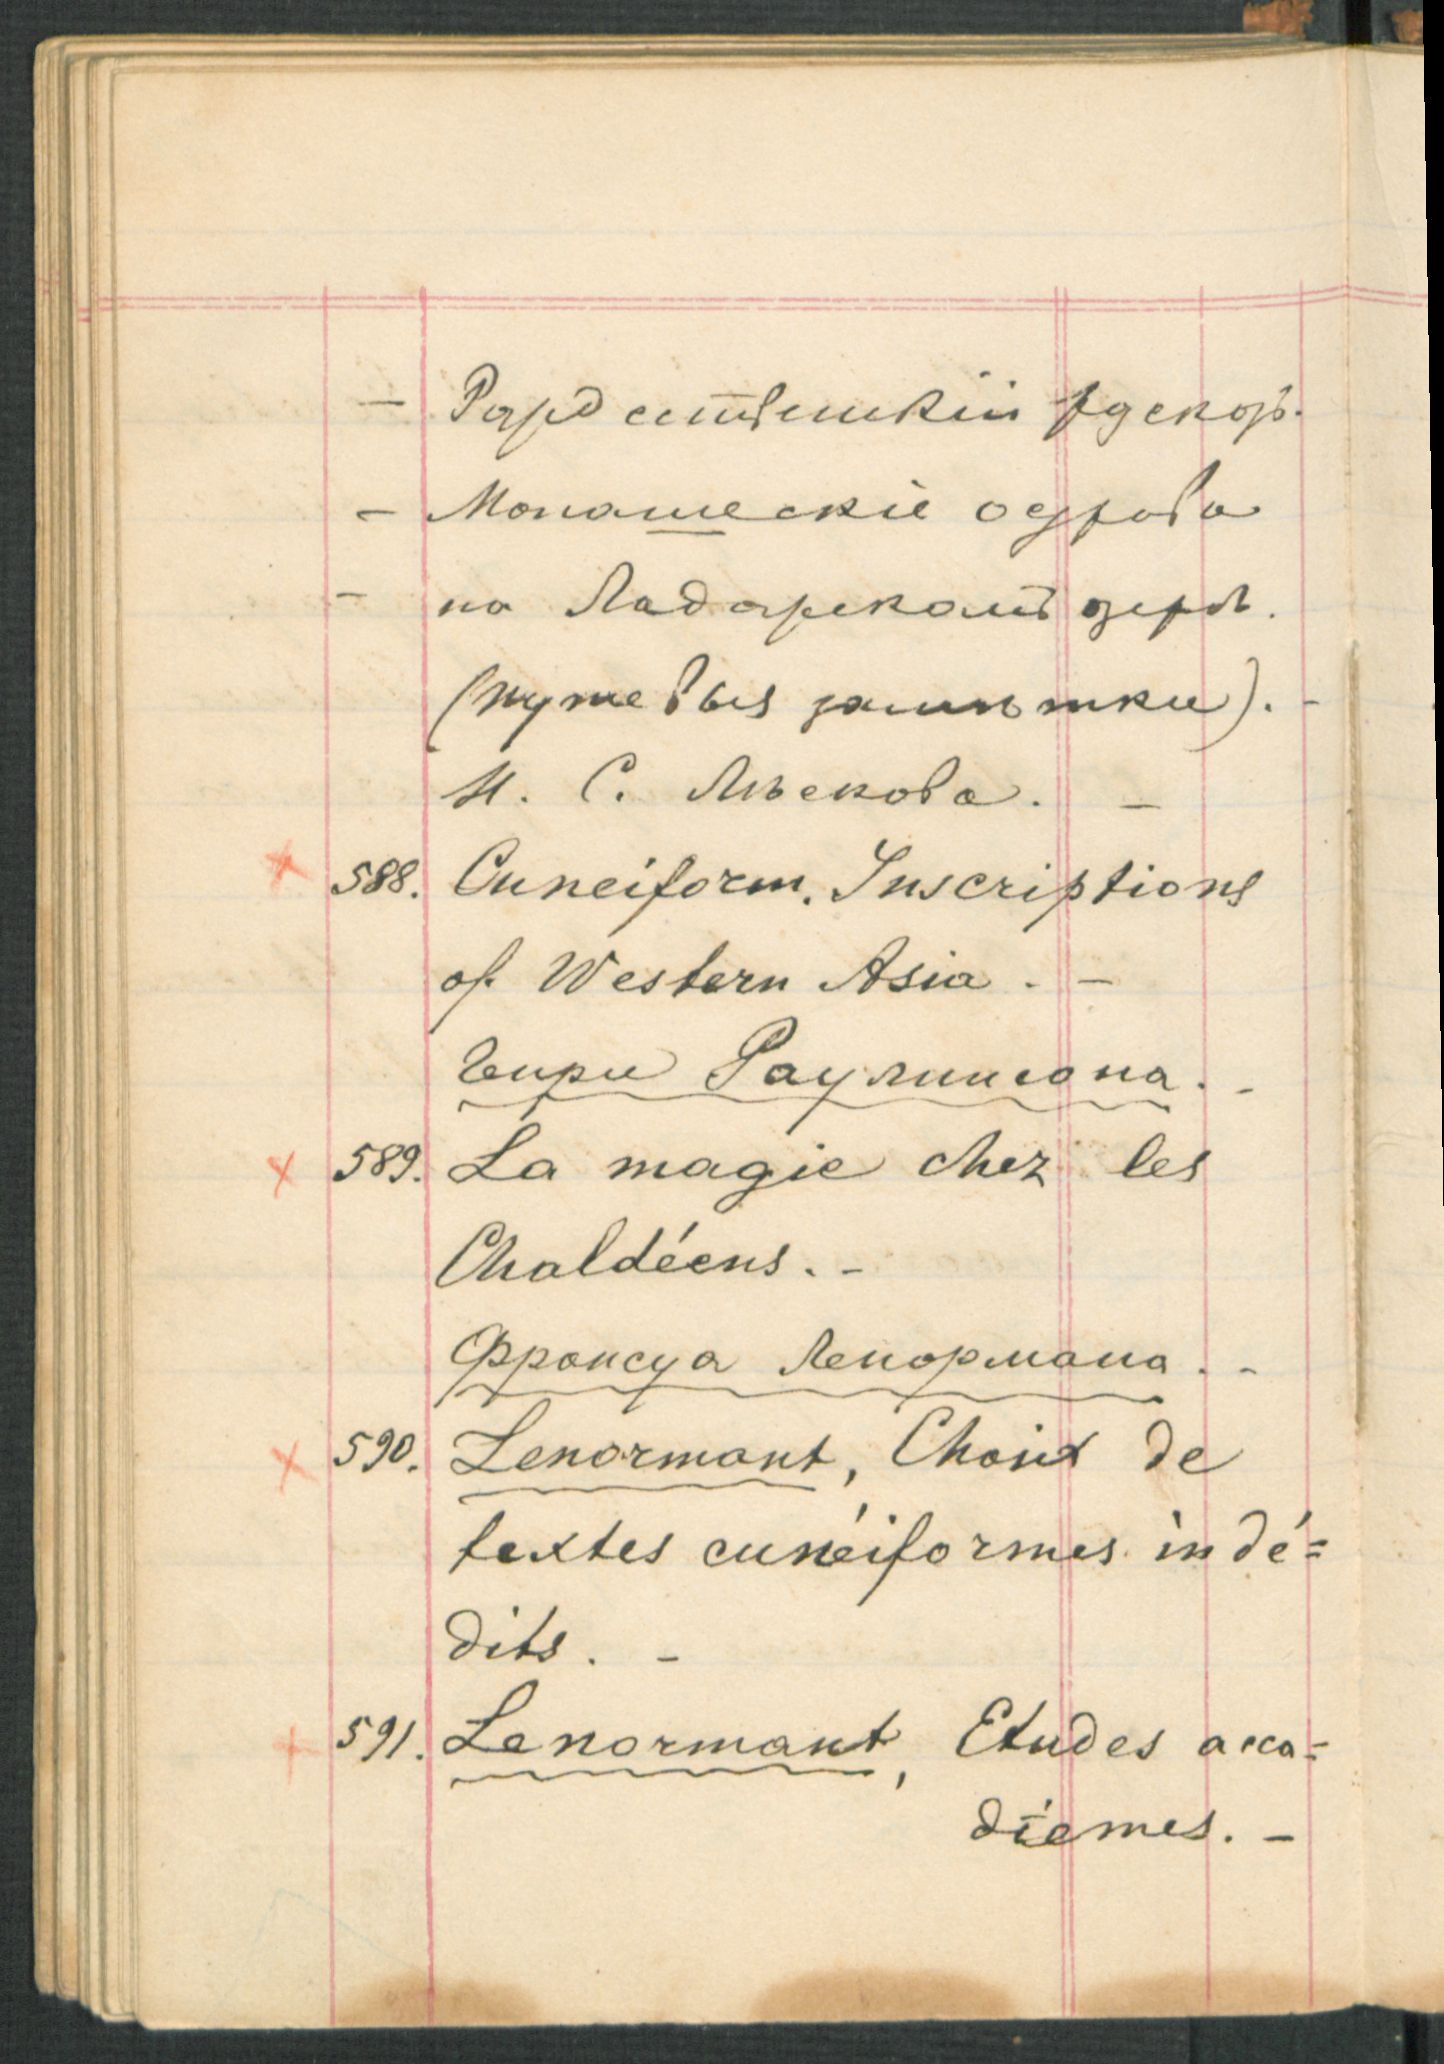 — Рождественскій разсказъ.
— Монашескіе острова
— на Ладожскомъ озерѣ.
(путевыя замѣтки). –
Н. С. Лѣскова. —
588. Cuneiform. Inscriptions
of Western Asia. –
Генри Раулинсона. –
589. La magie chez les
Chaldéens. –
Франсуа Ленормана. –
590. Lenormant, Choix de
textes cunéiformes indé=
dits. –
591. Lenormant, Etudes acca=
diemes. –